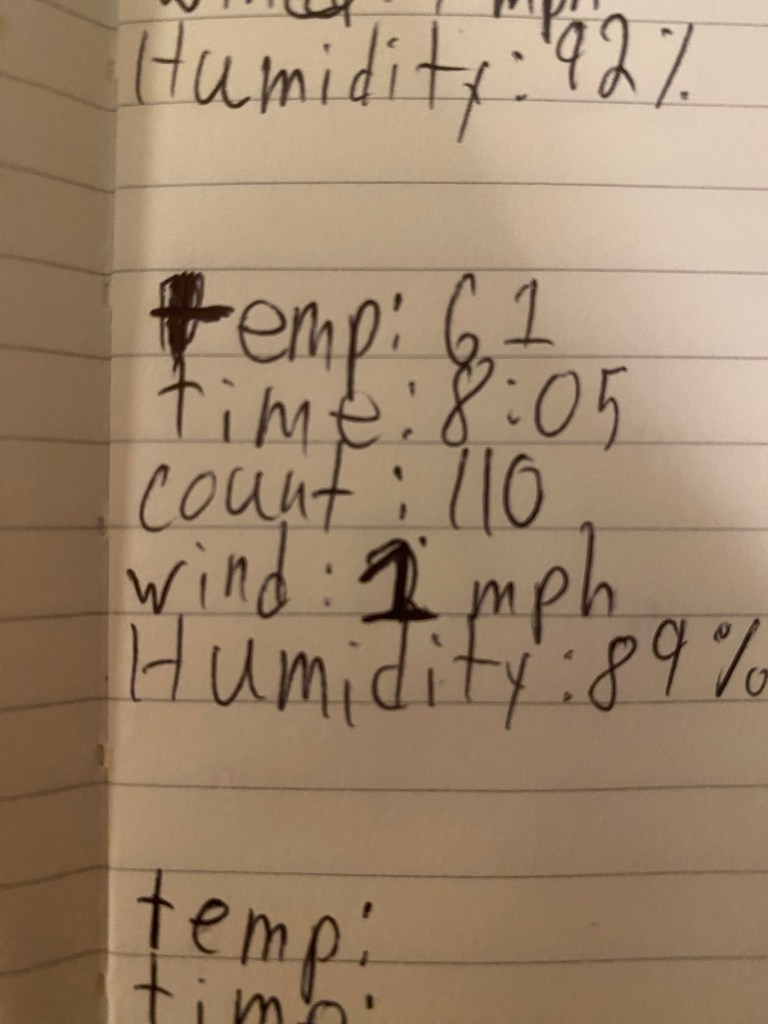 mph
Humidity: 92%
temp: 61
time: 8:05
count: 110
wind: 1 mph
Humidity: 89%
temp:
time: